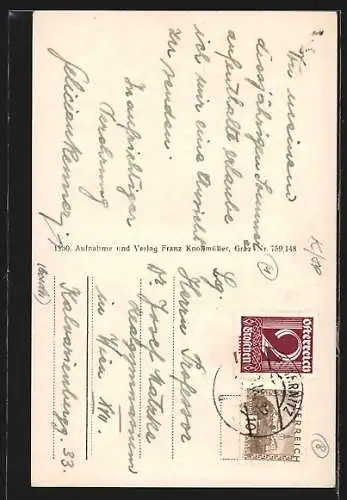 Von meinem
diesjährigen Sommer-
aufenthalte erlaube
ich mir eine Ansicht
zu senden.
In aufrichtiger
Verehrung
1930. Aufnahme und Verlag Franz Knollmüller, Graz. Nr. 759/148
Sg.
Herrn Professor
Dr. Josef Matzke
Realgymnasium
in Wien
Kalvarienberg. 33.
2
Österreich
Groschen
ÖSTERREICH